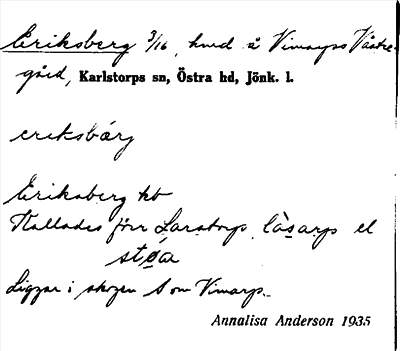 Eriksberg 3/16, hmd å Vimarps Västre-
gård, Karlstorps sn, Östra hd, Jönk. l.
ereksbärg
Eriksberg hb
Kallades förr Larstorp, låsarp el
støa
Ligger i skogen S om Vimarp.
Annalisa Anderson 1935